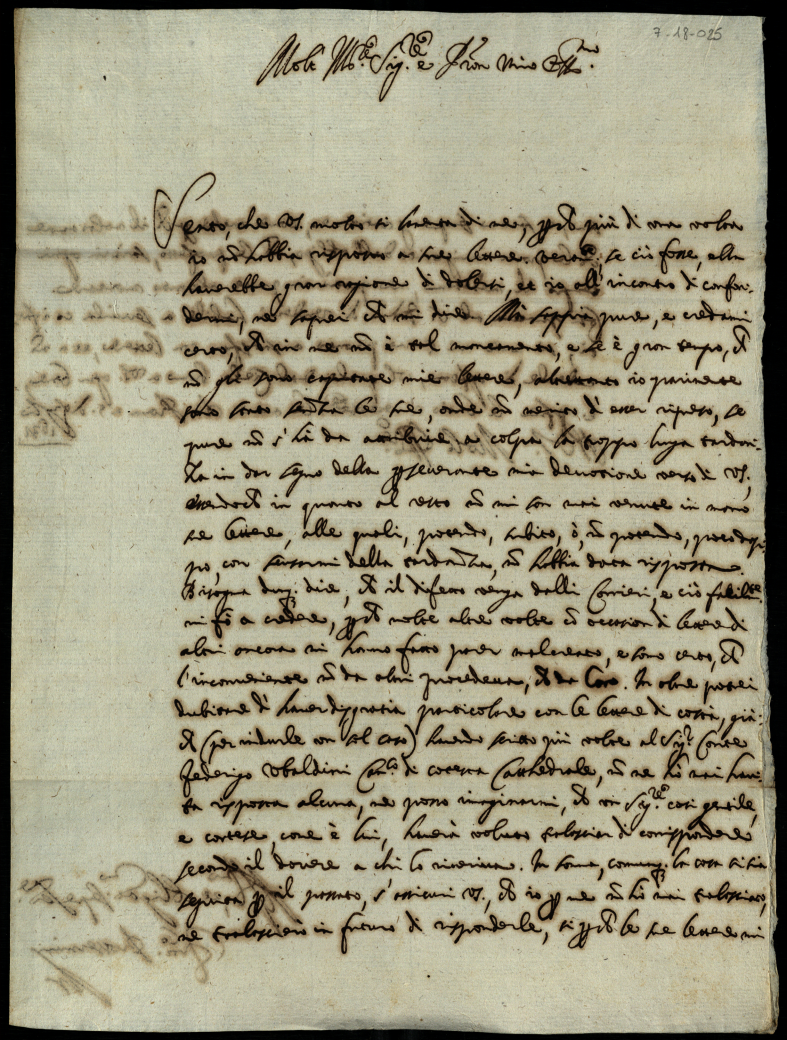 7-18-025
Molt' Ill.re Sig.re e P.ron mio Oss.mo
Sento, che VS. molto si lamenta di me, p che più di una volta
io nõ habbia risposto a sue lettere. veram.te se ciò fosse, ella
haverebbe gran ragione di dolersi, et io all'incontro di confon-
dermi, ne saprei che mi dire. Mà sappia pure, e credami
certo, che in me nõ è tal mancamento, e se è gran tempo, che
nõ gli sono capitate mie lettere, altrettanto io parimente
sono stato senza le sue, onde nõ merito d'esser ripreso, se
pure nõ s'hà da attribuire a colpa la troppo lunga tardan-
za in dar segno della p severante mia devotione verso di VS.,
essendo che in quanto al resto nõ mi son mai venute in mano
sue lettere, alle quali, potendo, subito, ò, nõ potendo, poco dop-
po, con scusarmi della tardanza, nõ habbia data risposta.
Bisogna dunq. dire, che il difetto venga dalli Corrieri, e ciò facilm.te
mi fà a credere, p che molte altre volte cõ occasion di lettere di
altri ancora mi hanno fatto parer malcreato, e sono certo, che
l'inconveniente nõ da altri procedeva, che da loro. In oltre potrei
dubitare d'haver disgratia particolare con le lettere di costà, già-
che (per indurle un sol caso) havendo scritto più volte al Sig.r Conte
Federigo Ubaldini Can.co di cotesta Cathedrale, nõ ne hò mai havu-
ta risposta alcuna, ne posso imaginarmi, che un Sig.re così gentile,
e cortese, come è lui, haverà voluto tralasciar di corrispondere
secondo il dovere a chi lo riveriva. In somma, comunq. la cosa si sia
seguita p il passato, s'assicuri VS., che io p me nõ hò mai tralasciato,
ne tralasciarò in futuro di risponderle, si p che le sue lettere mi